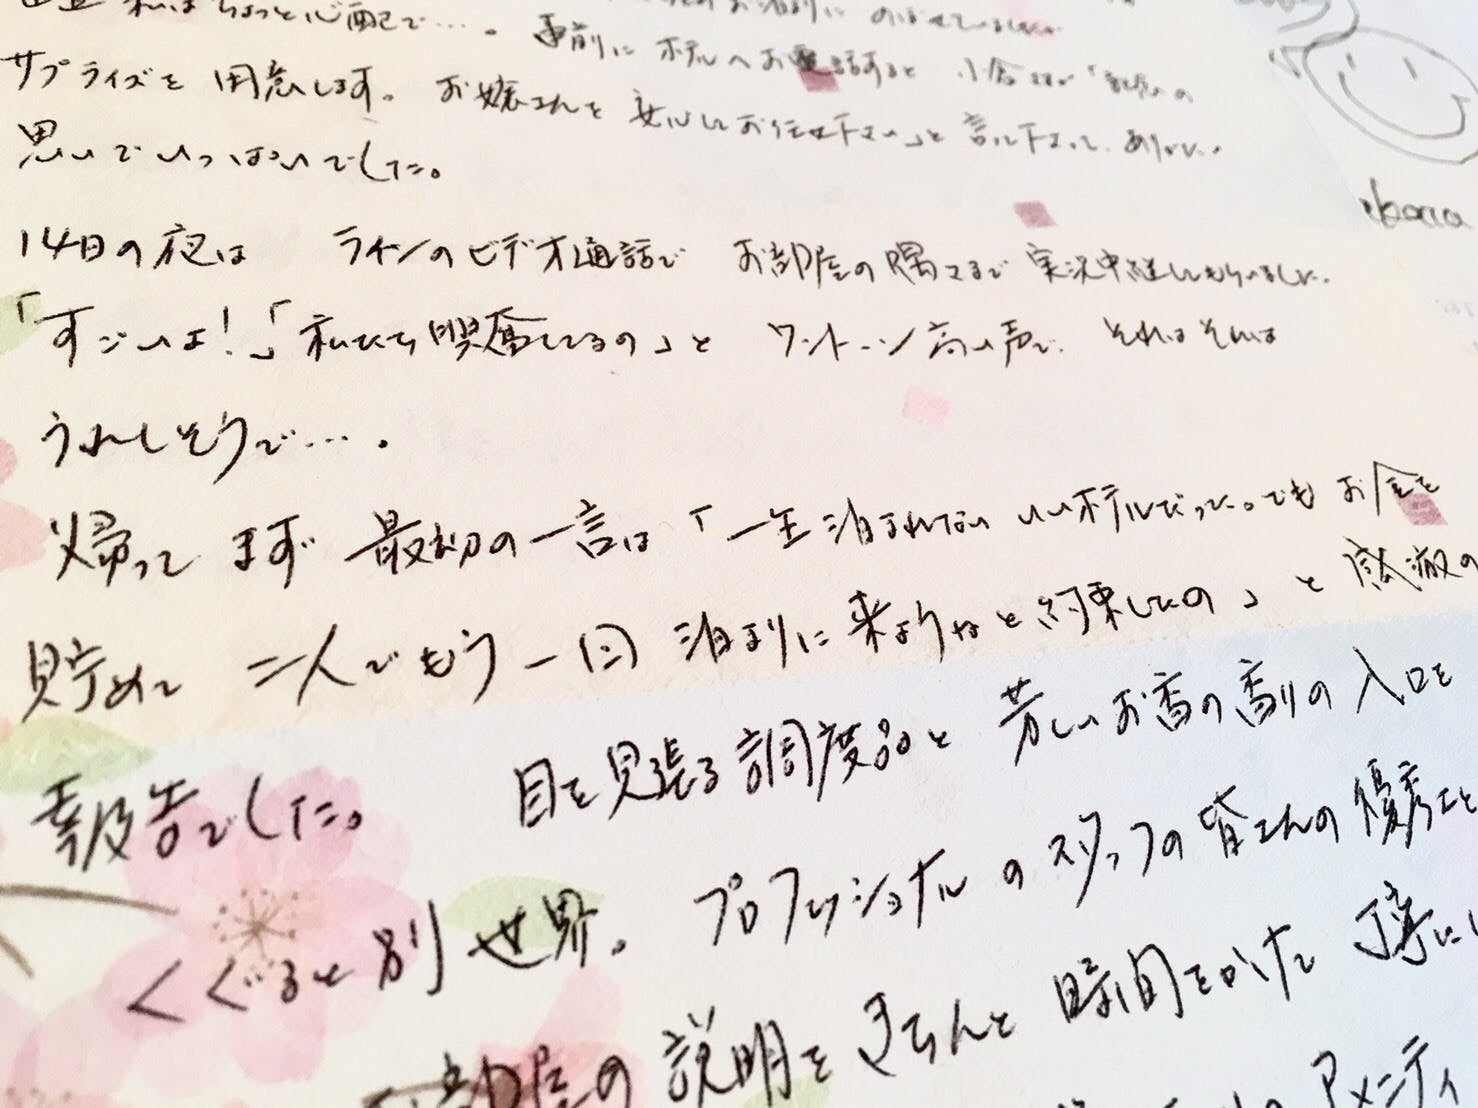 私はちょっと心配で…。事前に ホテルへお電話すると 「
サプライズを 用意します。お嬢さんを 安心してお任せ下さい」と 言って下さって、ありがたい
思いでいっぱいでした。
14日の夜は ラインのビデオ通話で お部屋の隅々まで 実況中継してもらいました。
「すごいよ!」「私たち興奮してるの」と ワントーン高い声で、それはそれは
うれしそうで…。
帰って まず 最初の一言は 「一生泊まれない いいホテルだった。でも お金を
貯めて 二人でもう一回 泊まりに来ようねと約束したの」と 感激の
報告でした。 目を見張る調度品と 芳しいお香の香りの入口を
くぐると別世界。プロフェッショナルのスタッフの皆さんの優秀さと
部屋の説明を きちんと 時間をかけた 丁寧に
アメニティ